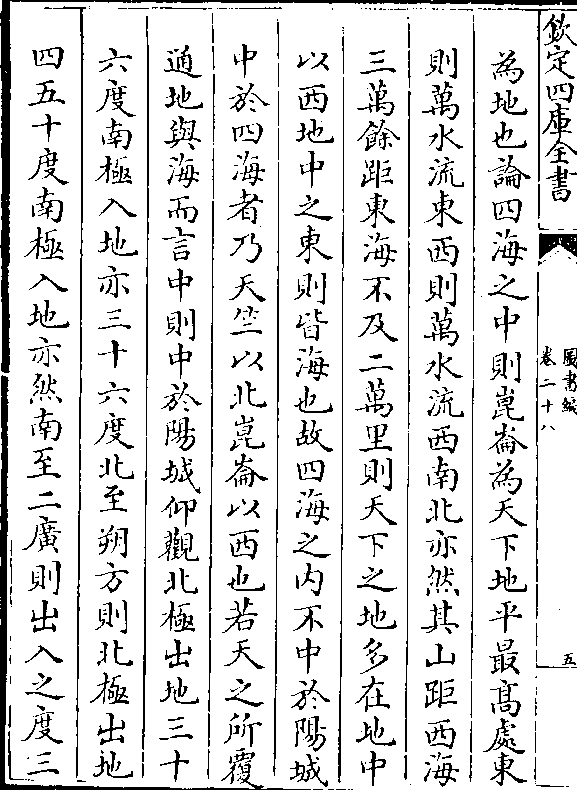 欽定四庫全書
圖書編
卷二十八
五
為地也論四海之中則崑崙為天下地平最髙處東
則萬水流東西則萬水流西南北亦然其山距西海
三萬餘距東海不及二萬里則天下之地多在地中
以西地中之東則皆海也故四海之内不中於陽城
中於四海者乃天竺以北崑崙以西也若天之所覆
通地與海而言中則中於陽城仰觀北極出地三十
六度南極入地亦三十六度北至朔方則北極出地
四五十度南極入地亦然南至二廣則出入之度三